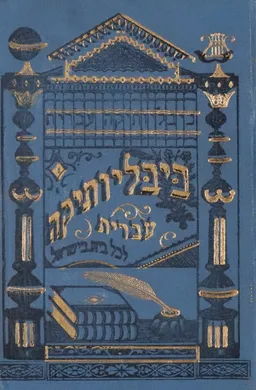 ביבליותיקה
עברית
לכל בית בישראל